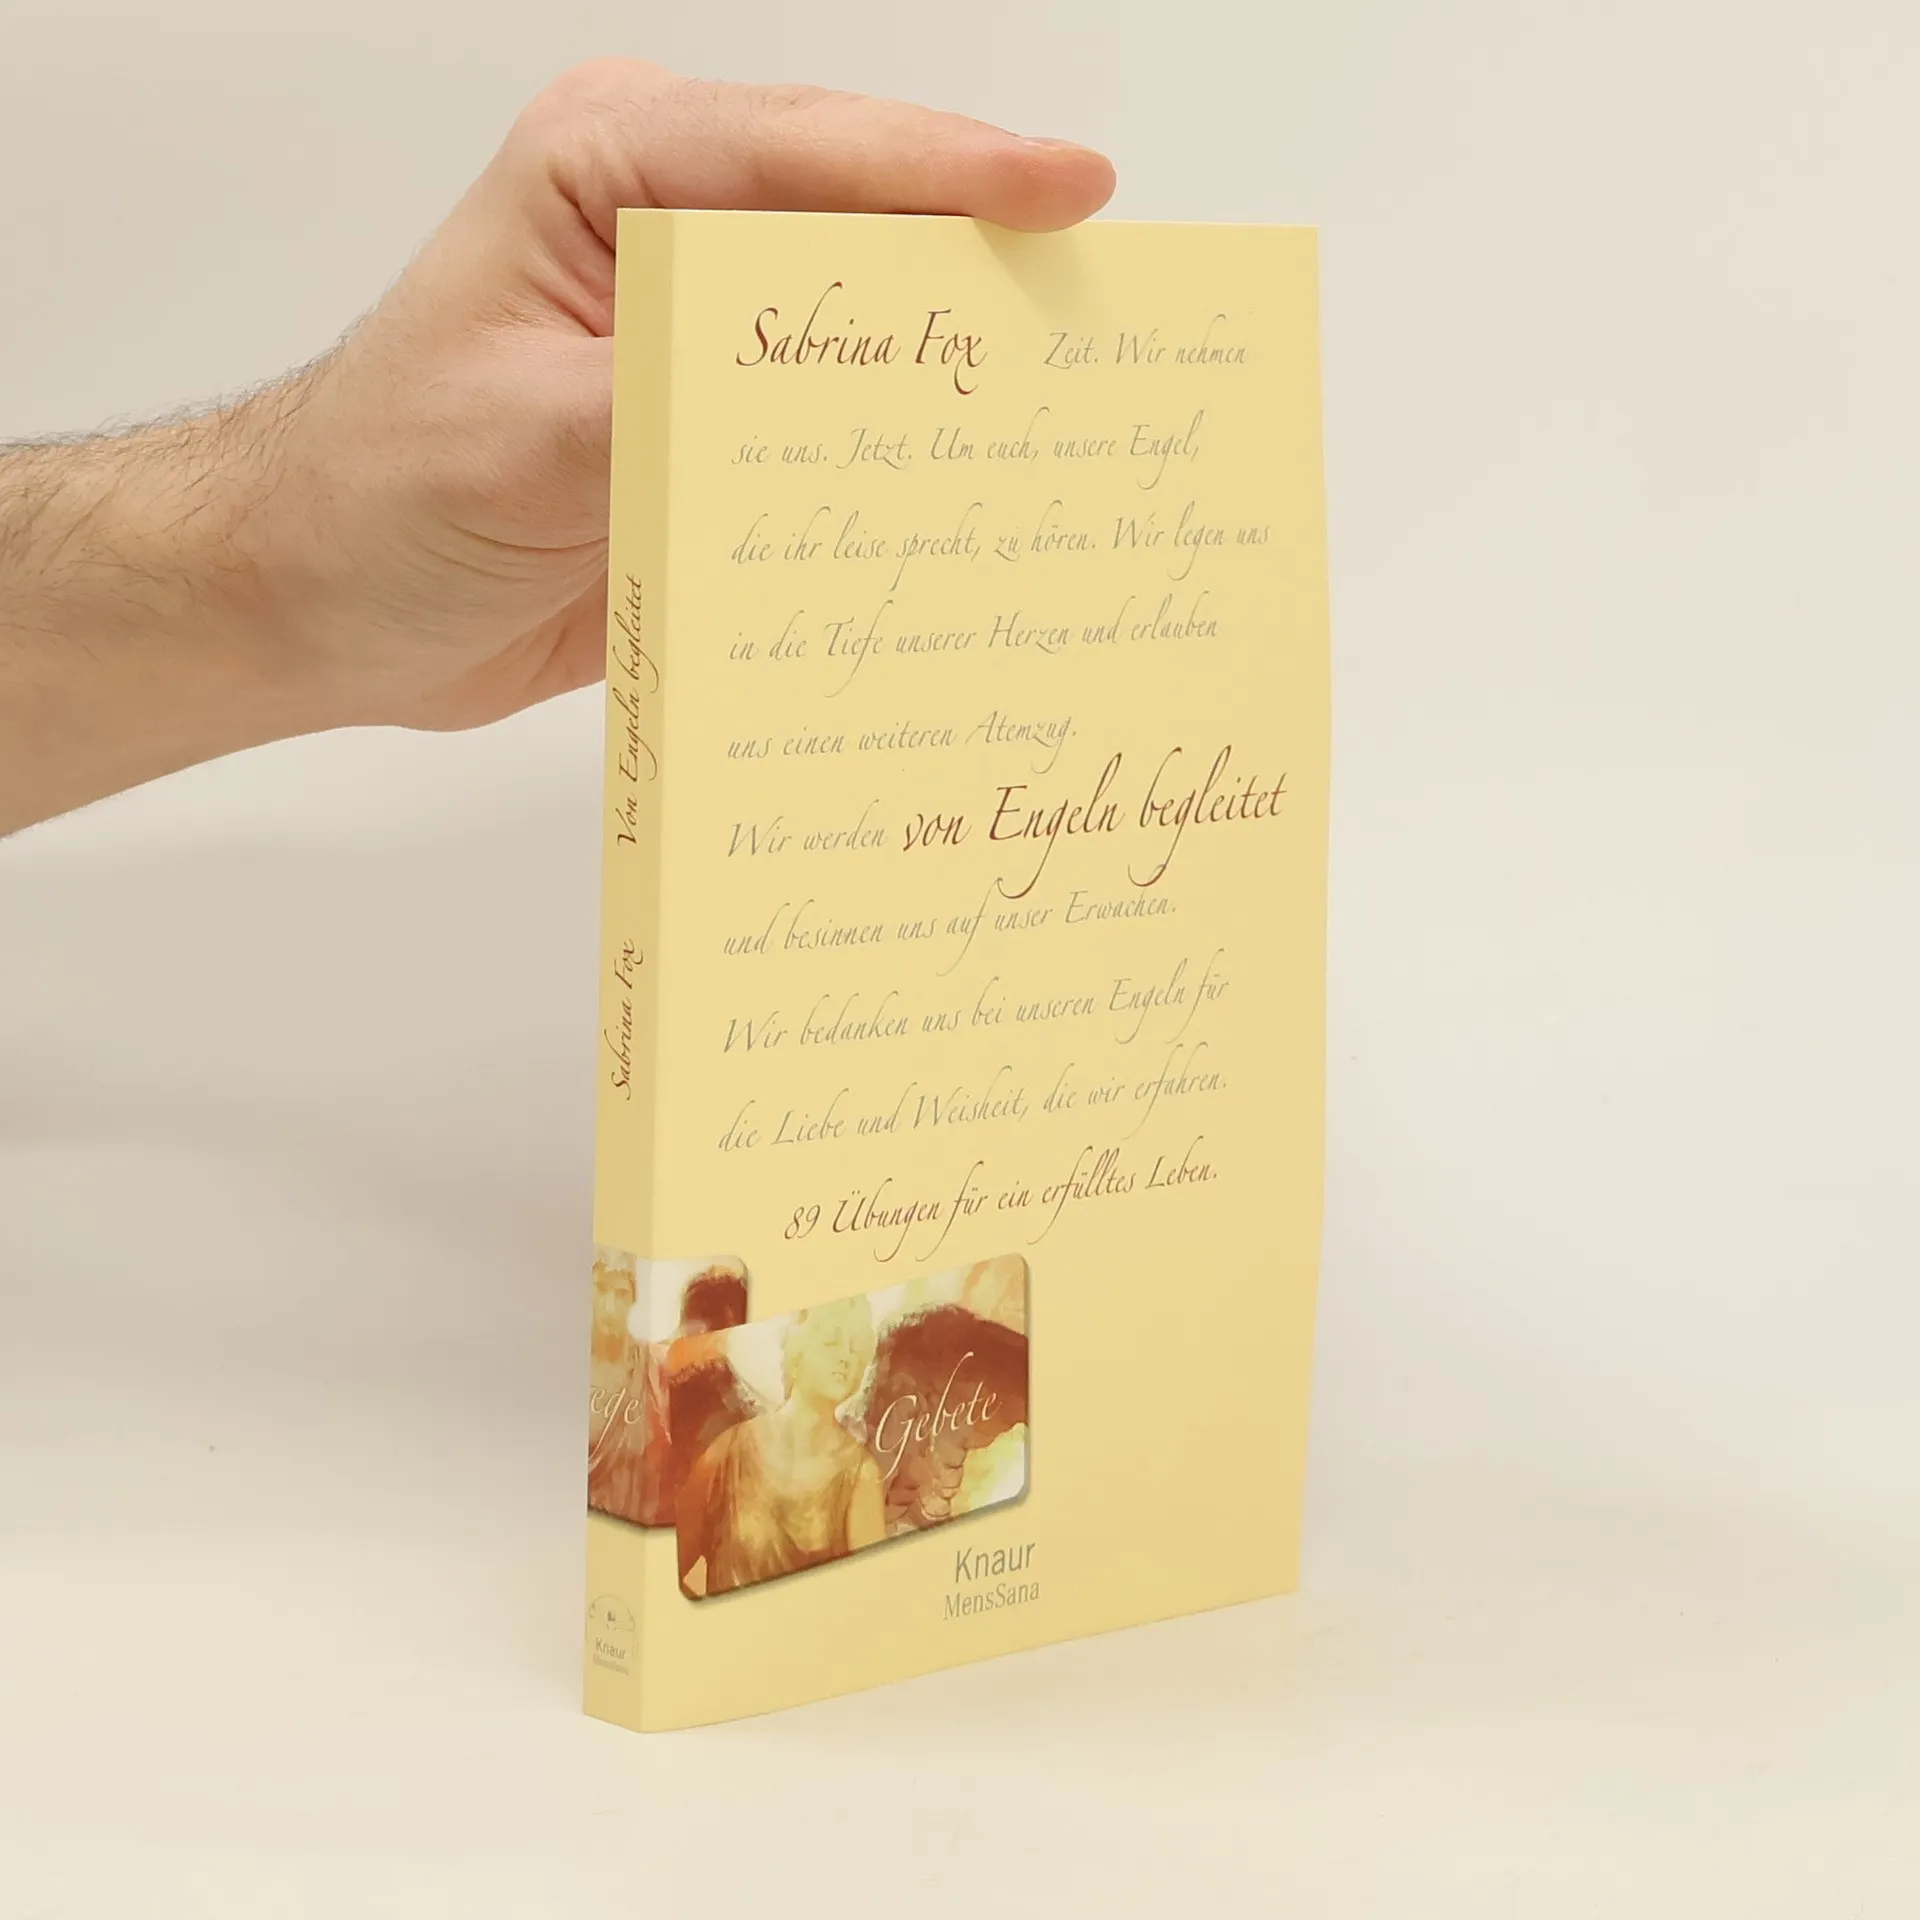 Sabrina Fox Zeit. Wir nehmen
sie uns. Jetzt. Um euch, unsere Engel,
die ihr leise sprecht, zu hören. Wir legen uns
in die Tiefe unserer Herzen und erlauben
uns einen weiteren Atemzug.
Wir werden von Engeln begleitet
und besinnen uns auf unser Erwachen.
Wir bedanken uns bei unseren Engeln für
die Liebe und Weisheit, die wir erfahren.
89 Übungen für ein erfülltes Leben.
Gebete
Knaur
MensSana
Sabrina Fox Von Engeln begleitet
ege
Knaur
MensSana